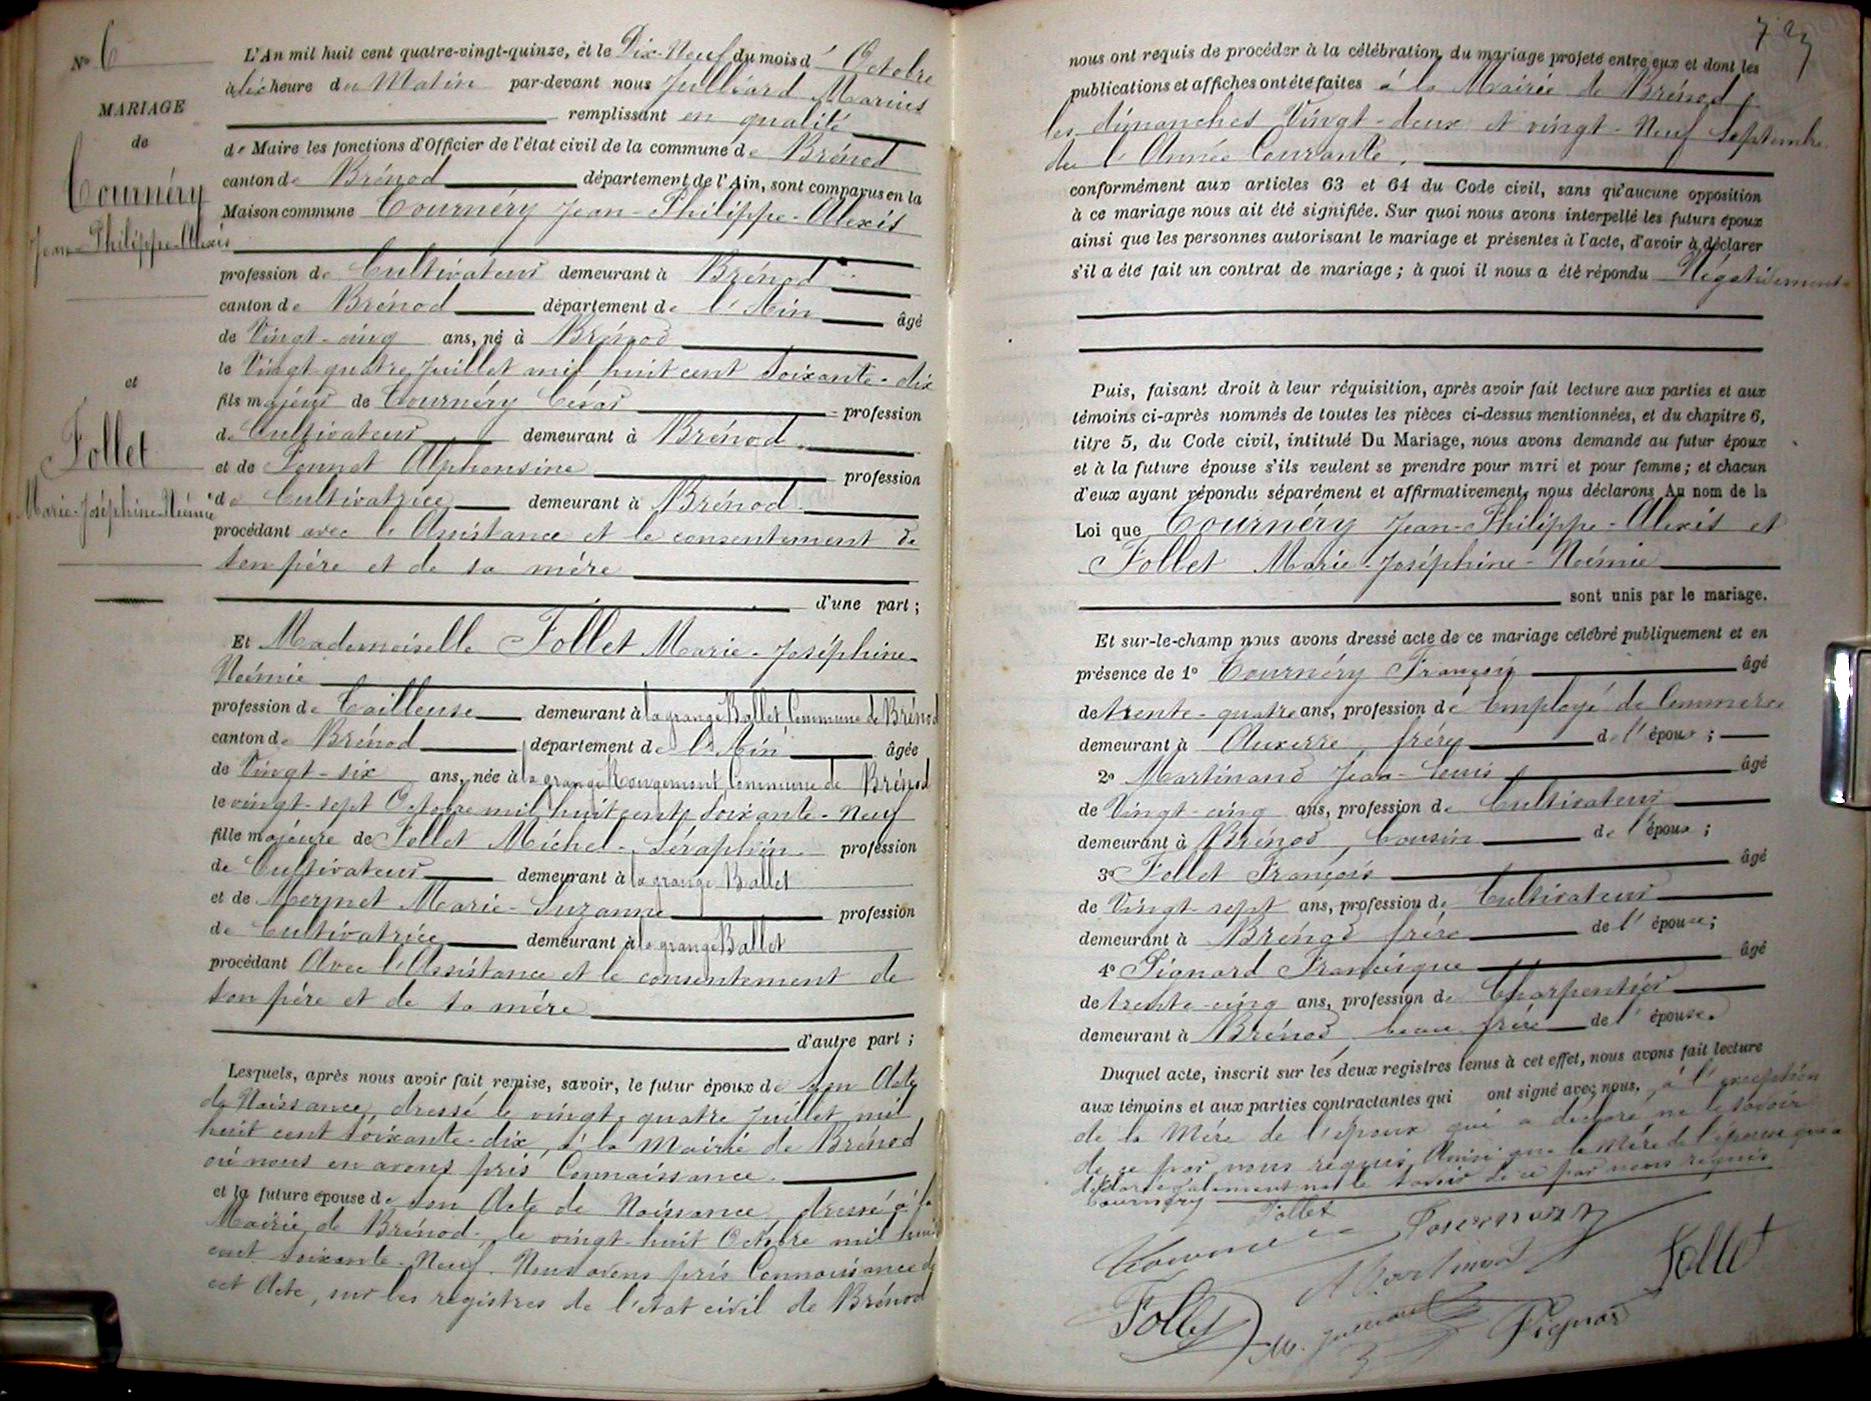 N° 6
MARIAGE
de
Tournéry
Jean-Philippe-Alexis
et
Follet
Marie-Joséphine-Noémie
L'An mil huit cent quatre-vingt-quinze, et le Dix-Neuf du mois d'Octobre
à dix heure du Matin par-devant nous Julliard Marius
remplissant en qualité
de Maire les fonctions d'Officier de l'état civil de la commune de Brénod
canton de Brénod département de l'Ain, sont comparus en la
Maison commune Tournéry Jean-Philippe-Alexis
profession de Cultivateur demeurant à Brénod
canton de Brénod département de l'Ain âgé
de Vingt-cinq ans, né à Brénod
le Vingt-quatre Juillet mil huit cent Soixante-dix
fils majeur de Tournéry César profession
de Cultivateur demeurant à Brénod
et de Alphonsine profession
de Cultivatrice demeurant à Brénod
procédant avec l'Assistance et le consentement de
son père et de sa mère
d'une part;
Et Mademoiselle Follet Marie-Joséphine-
Noémie
profession de Tailleuse demeurant à la grange Ballet Commune de Brénod
canton de Brénod département de l'Ain âgée
de Vingt-six ans, née à la grange Rougemont, Commune de Brénod
le vingt-sept Octobre mil huit cent Soixante-Neuf
fille majeure de Follet Michel-Séraphin profession
de Cultivateur demeurant à la grange Ballet
et de Mermet Marie-Suzanne profession
de Cultivatrice demeurant à la grange Ballet
procédant Avec l'Assistance et le consentement de
son père et de sa mère
d'autre part;
Lesquels, après nous avoir fait remise, savoir, le futur époux de son Acte
de Naissance, dressé le vingt-quatre Juillet mil
huit cent soixante-dix, à la Mairie de Brénod
où nous en avons pris Connaissance.
et la future épouse de son Acte de Naissance dressé à la
Mairie de Brénod, le vingt-huit Octobre mil huit
cent soixante-Neuf. Nous avons pris Connaissance de
cet Acte, sur les registres de l'état civil de Brénod
nous ont requis de procéder à la célébration du mariage projeté entre eux et dont les
publications et affiches ont été faites à la Mairie de Brénod
les dimanches Vingt-deux et vingt-Neuf Septembre
de l'Année Courante.
conformément aux articles 63 et 64 du Code civil, sans qu'aucune opposition
à ce mariage nous ait été signifiée. Sur quoi nous avons interpellé les futurs époux
ainsi que les personnes autorisant le mariage et présentes à l'acte, d'avoir à déclarer
s'il a été fait un contrat de mariage; à quoi il nous a été répondu Négativement
Puis, faisant droit à leur réquisition, après avoir fait lecture aux parties et aux
témoins ci-après nommés de toutes les pièces ci-dessus mentionnées, et du chapitre 6,
titre 5, du Code civil, intitulé Du Mariage, nous avons demandé au futur époux
et à la future épouse s'ils veulent se prendre pour mari et pour femme; et chacun
d'eux ayant répondu séparément et affirmativement, nous déclarons Au nom de la
Loi que Tournéry Jean-Philippe-Alexis et
Follet Marie-Joséphine-Noémie
sont unis par le mariage.
Et sur-le-champ nous avons dressé acte de ce mariage célébré publiquement et en
présence de 1° Tournéry François âgé
de trente-quatre ans, profession d'Employé de Commerce
demeurant à Auxerre, frère de l'époux;
2° Martinand Jean-Louis âgé
de Vingt-cinq ans, profession de Cultivateur
demeurant à Brénod, Cousin de l'époux;
3° Follet François âgé
de Vingt-sept ans, profession de Cultivateur
demeurant à Brénod frère de l'épouse;
4° Pignard Francisque âgé
de trente-cinq ans, profession de Charpentier
demeurant à Brénod, beau-frère de l'épouse.
Duquel acte, inscrit sur les deux registres tenus à cet effet, nous avons fait lecture
aux témoins et aux parties contractantes qui ont signé avec nous, à l'exception
de la Mère de l'époux qui a déclaré ne le savoir
de ce par nous requis, Ainsi que la Mère de l'épouse qui a
déclaré également ne le savoir de ce par nous requis
Tournéry Follet
Martinand
Follet
Follet M. Julliard Pignard